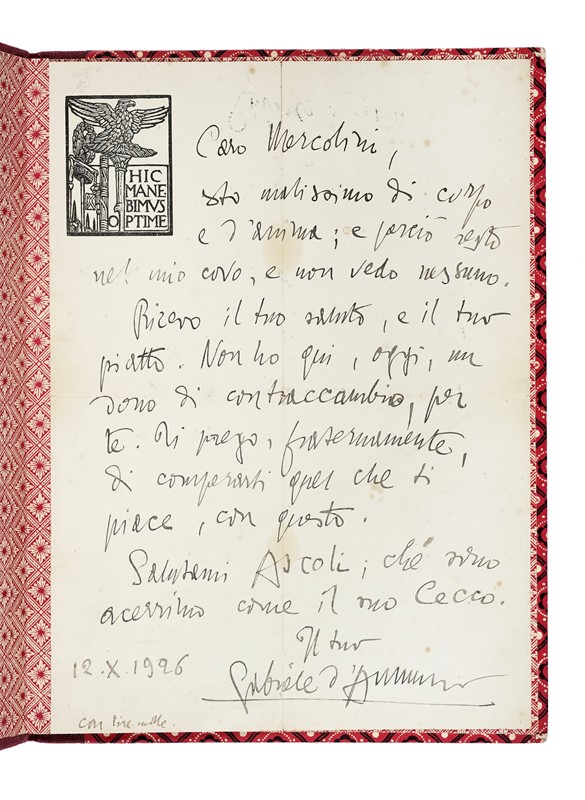 HIC
MANE
BIMVS
OPTIME
Caro Mercolini,
sto malissimo di corpo
e d'anima; e perciò resto
nel mio covo, e non vedo nessuno.
Ricevo il tuo saluto, e il tuo
piatto. Non ho qui, oggi, un
dono di contraccambio, per
te. Ti prego, fraternamente,
di comperarti quel che ti
piace, con questo.
Salutami Ascoli; ché sono
acerrimo come il suo Cecco.
Il tuo
Gabriele d'Annunzio
12.X.1926
con lire mille.